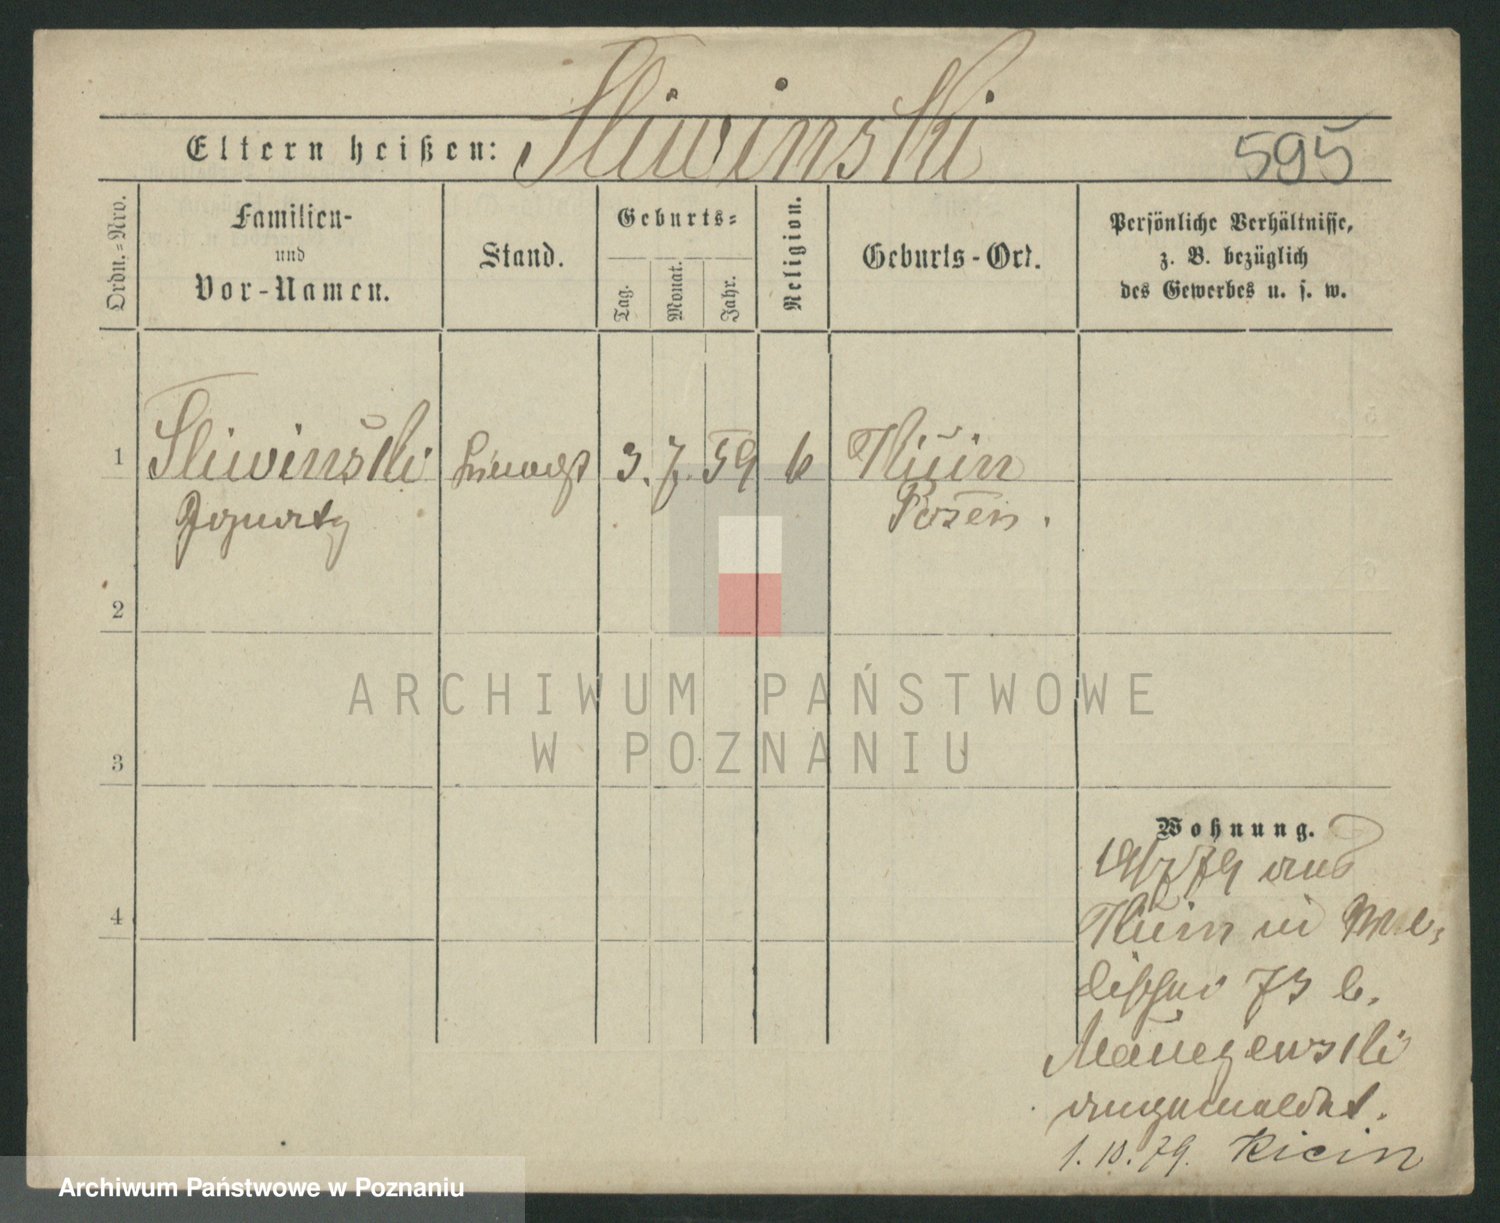 Eltern heißen: Sliwinski
595
Ordn.-Nro.
Familien-
und
Vor-Namen.
Stand.
Geburts-
Tag.
Monat.
Jahr.
Religion.
Geburts-Ort.
Persönliche Verhältnisse,
z. B. bezüglich
des Gewerbes u. s. w.
1
Sliwinski
3. 7. 59
k
Kicin
Ignatz
Posen.
2
ARCHIWUM PAŃSTWOWE
W POZNANIU
3
Wohnung.
19/7 79 aus
4
Kicin in
73 b.
angemeldet.
1. 10. 79. Kicin
Archiwum Państwowe w Poznaniu